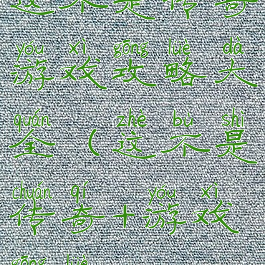 这不是传奇
yóu xì gōng lüè dà
游戏攻略大
quán zhè bú shì
全(这不是
chuán qí yóu xì
传奇+游戏
gōng lüè